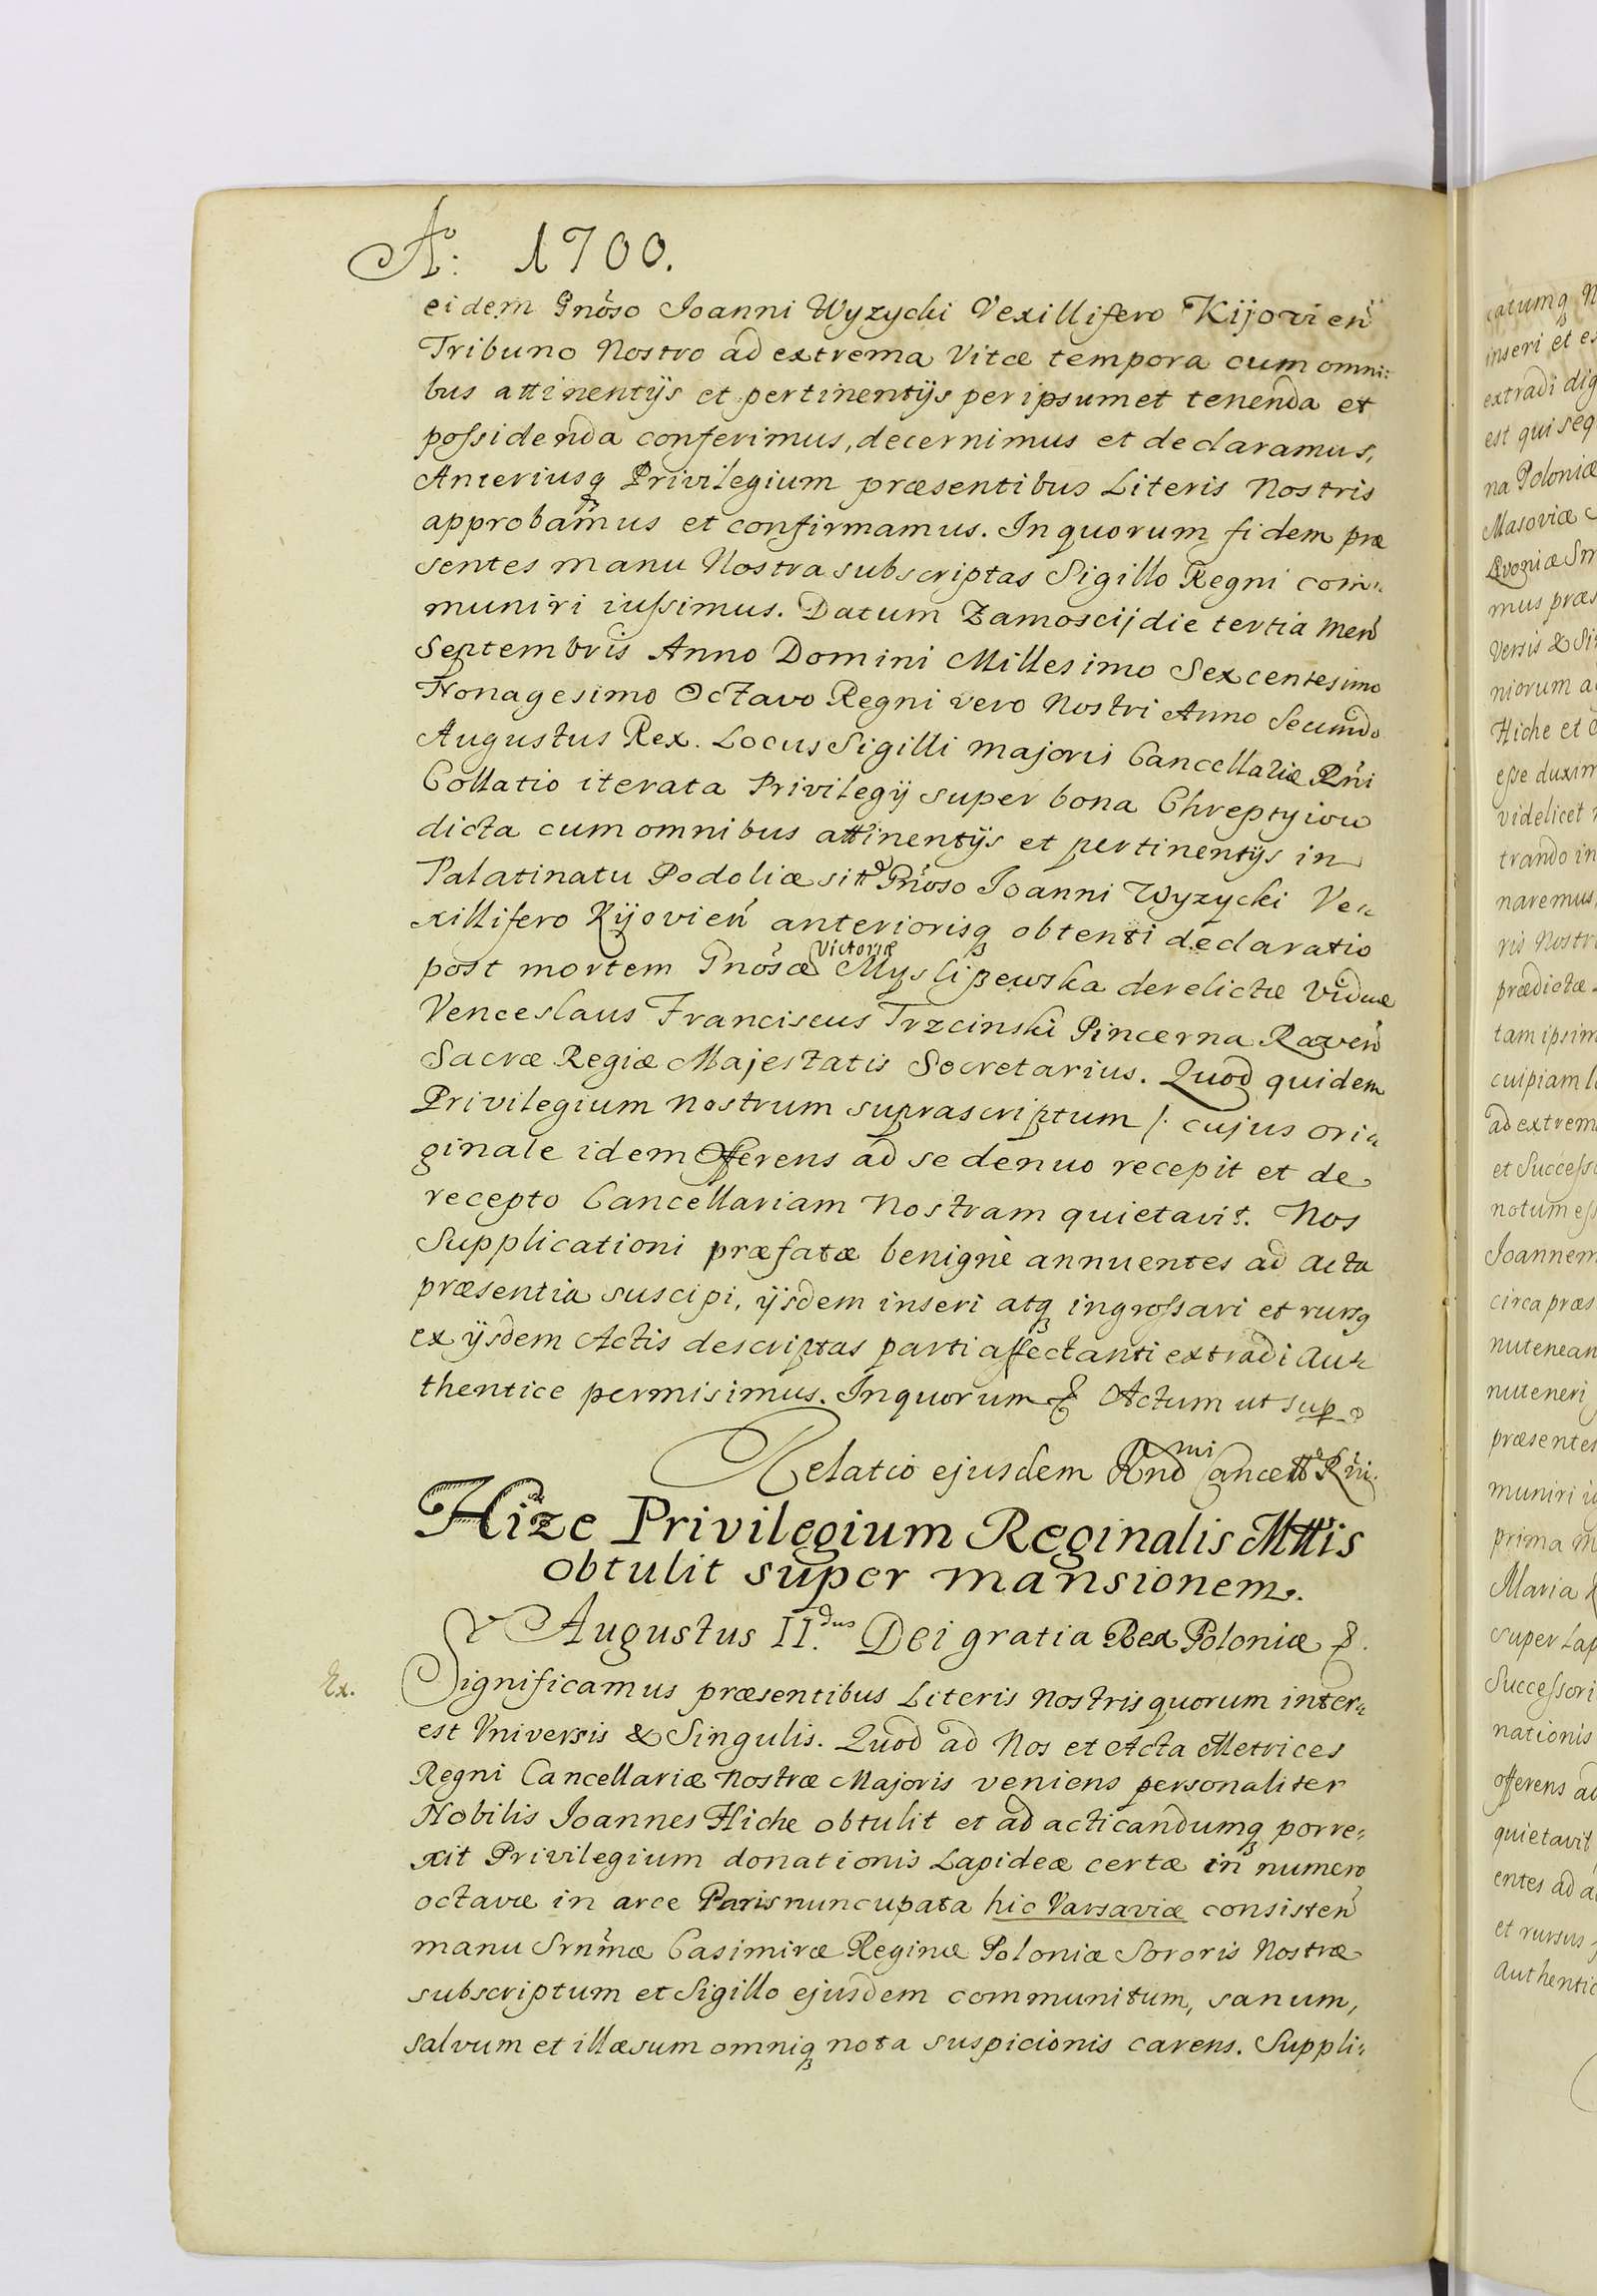 Aº: 1700.
eidem Gnoso Joanni Wyzycki Vexillifero Kijovien
Tribuno Nostro ad extrema Vitæ tempora cum omni:
bus attinentijs et pertinentijs per ipsummet tenenda et
possidenda conferimus, decernimus et declaramus,
Anteriusq Privilegium præsentibus Literis Nostris
approbamus et confirmamus. In quorum fidem præ
sentes manu Nostra subscriptas Sigillo Regni com:
muniri iussimus. Datum Zamoscij die tertia Men
Septembris Anno Domini Millesimo Sexcentesimo
Nonagesimo Octavo Regni vero Nostri Anno Secundo
Augustus Rex. Locus Sigilli Majoris Cancellariæ Rni
Collatio iterata Privilegij super bona Chreptyiow
dicta cum omnibus attinentijs et pertinentijs in
Palatinatu Podoliæ sitt Gnoso Joanni Wyzycki Ve:
xillifero Kijovien anteriorisq obtenti declaratio
post mortem Gnosæ Victoriæ Myslißewska derelictæ Viduæ
Venceslaus Franciscus Trzcinski Pincerna Raven
Sacræ Regiæ Majestatis Secretarius. Quod quidem
Privilegium Nostrum suprascriptum /. cujus ori:
ginale idem Offerens ad se denuo recepit et de
recepto Cancellariam Nostram quietavit. Nos
Supplicationi præfatæ benignè annuentes ad Acta
præsentia suscipi, ijsdem inseri atq ingrossari et rursq
ex ijsdem Actis descriptas parti affectanti extradi Au:
thentice permisimus. In quorum & Actum ut sup
Relatio ejusdem Rndmi Cancell Rni.
Hize Privilegium Reginalis Mttis
obtulit super mansionem.
Augustus II.dus Dei gratia Rex Poloniæ &.
Ex.
Significamus præsentibus Literis Nostris quorum inter:
est Vniversis & Singulis. Quod ad Nos et Acta Metrices
Regni Cancellariæ Nostræ Majoris veniens personaliter
Nobilis Joannes Hiche obtulit et ad acticandumq porre:
xit Privilegium donationis Lapideæ certæ in numero
octavæ in arce Paris nuncupata hic Varsaviæ consisten
manu Srnmæ Casimiræ Reginæ Poloniæ Sororis Nostræ
subscriptum et Sigillo ejusdem communitum, sanum,
salvum et illæsum omniq nota suspicionis carens. Suppli: